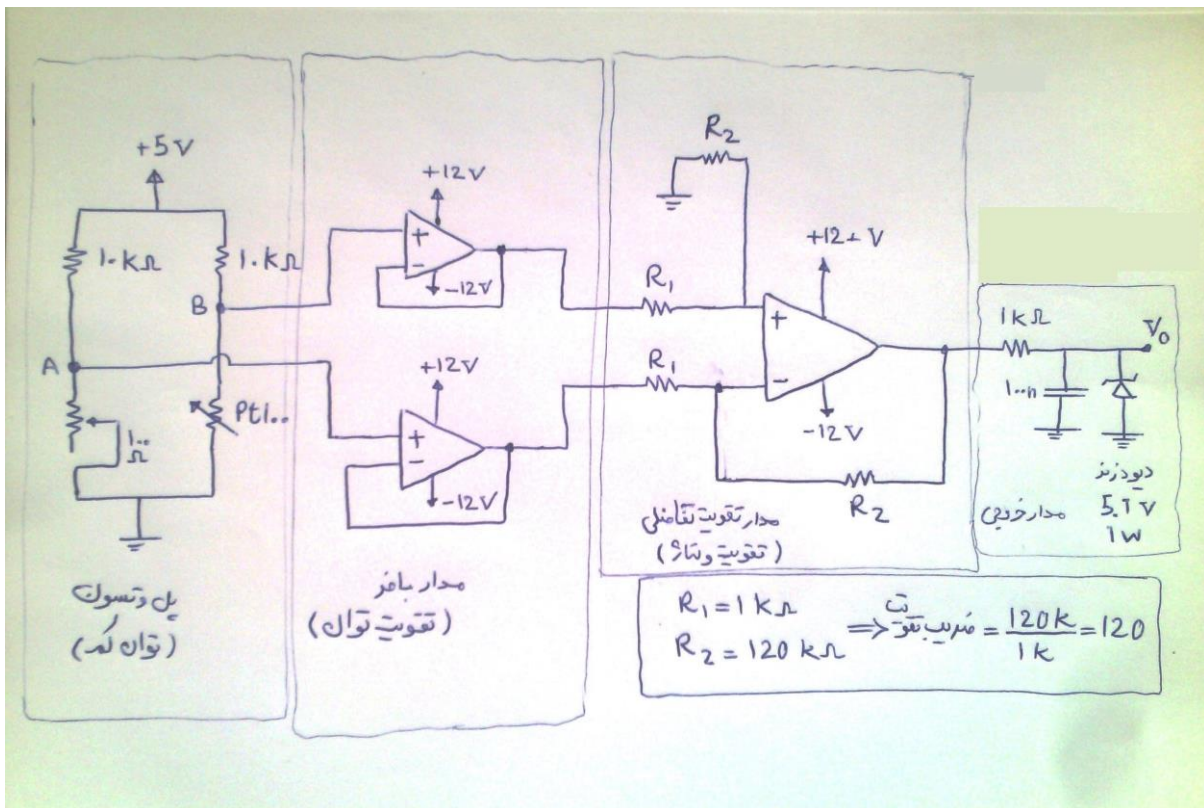 +5V
۱۰kΩ
۱۰kΩ
B
A
۱۰۰
Ω
Pt۱۰۰
پل وتسون
(توان کم)
+12V
+
-
-12V
+12V
+
-
-12V
مدار بافر
(تقویت توان)
R2
R1
R1
+12+V
+
-
-12V
R2
مدار تقویت تفاضلی
(تقویت ولتاژ)
1kΩ
Vo
۱۰۰n
دیود زنر
5.1V
1W
مدار خروجی
R1 = 1kΩ
R2 = 120kΩ
⇒ ضریب تقویت = 120k/1k = 120